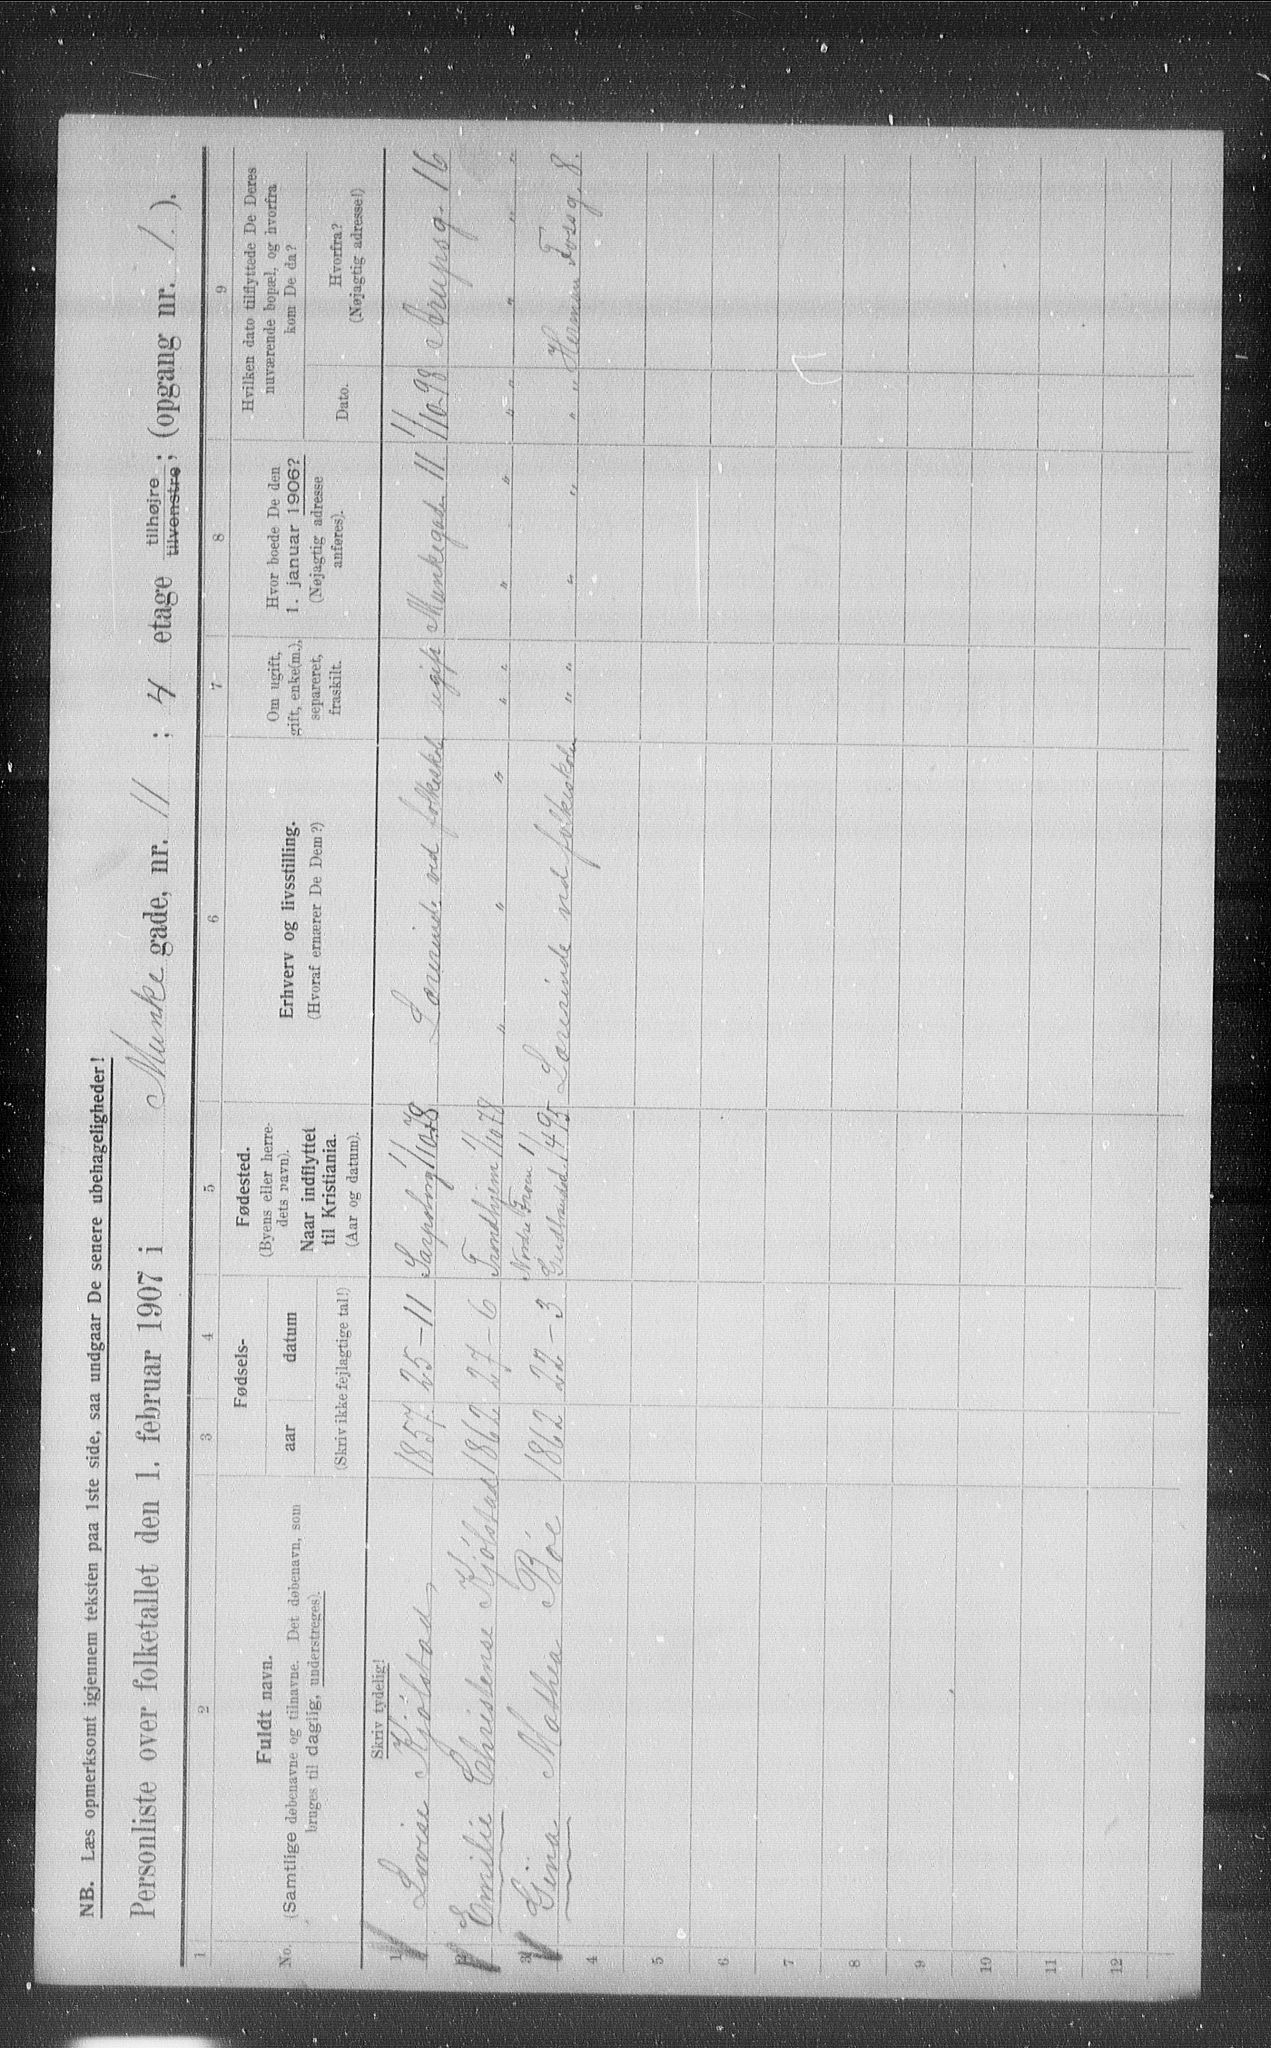 NB. Læs opmerksomt igjennem teksten paa 1ste side, saa undgaar De senere ubehageligheder!
Personliste over folketallet den 1. februar 1907 i Munkegade, nr. 11 ; 4 etage tilhøjre tilvenstre; (opgang nr. 1.).
1 2 3 4 5 6 7 8 9
No.
Fuldt navn.
(Samtlige døbenavne og tilnavne. Det døbenavn, som
bruges til daglig, understreges).
Fødsels-
aar datum
(Skriv ikke fejlagtige tal!)
Fødested.
(Byens eller herre-
dets navn).
Naar indflyttet
til Kristiania.
(Aar og datum).
Erhverv og livsstilling.
(Hvoraf ernærer De Dem?)
Om ugift,
gift, enke(m.),
separeret,
fraskilt.
Hvor boede De den
1. januar 1906?
(Nøjagtig adresse
anføres).
Hvilken dato tilflyttede De Deres
nuværende bopæl, og hvorfra
kom De da?
Dato.
Hvorfra?
(Nøjagtig adresse!)
Skriv tydelig!
1 Lovise Kjölstad, 1857 25-11 Sarpsborg 1/10 78 Lærerinde ved folkeskol ugift Munkegaden 11. 1/10-98 16
2 Emilie Christense Kjölstad 1862 27-6 Trondhjem 1/10 78 " " " " " " " " " " " "
3 Gina Mathea Böe 1862 27-3 Nordre Fron Gudbrandsd. 1/4 95 Lærerinde ved folkeskolen " " " " " " Herman Fossg. 8.
4
5
6
7
8
9
10
11
12